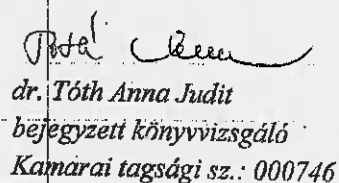 dr. Tóth Anna Judit
bejegyzett könyvvizsgáló
Kamarai tagsági sz.: 000746